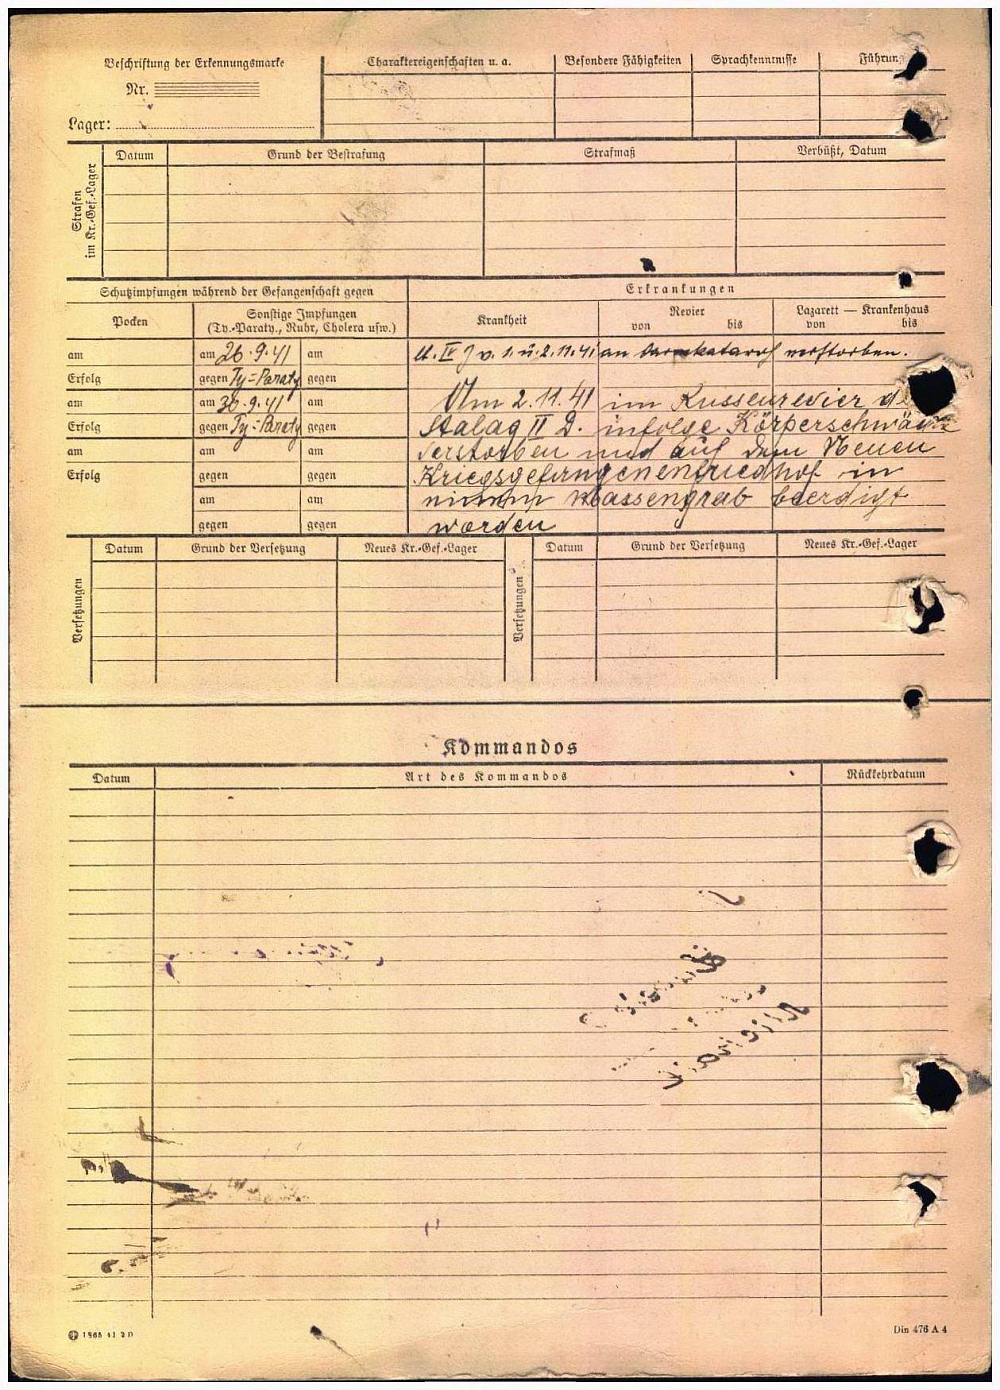 Beschriftung der Erkennungsmarke Charaktereigenschaften u. a. Besondere Fähigkeiten Sprachkenntnisse Führung
Nr.
Lager:
Strafen im Kr.-Gef.-Lager
Datum Grund der Bestrafung Strafmaß Verbüßt, Datum
Schutzimpfungen während der Gefangenschaft gegen Erkrankungen
Pocken Sonstige Impfungen (Ty.-Paraty., Ruhr, Cholera usw.) Krankheit Revier von bis Lazarett — Krankenhaus von bis
am am 26.9.41 am
Erfolg gegen Ty=Paraty gegen
am am 30.9.41 am
Erfolg gegen Ty=Paraty gegen
am am am
Erfolg gegen gegen
am am
gegen gegen
lt. IV J v. 1. u. 2.11.41 an verstorben.
Am 2.11.41 im Russenrevier
Stalag II D. infolge
verstorben und auf dem Neuen
Kriegsgefangenenfriedhof in
Massengrab beerdigt
worden
Versetzungen
Datum Grund der Versetzung Neues Kr.-Gef.-Lager
Versetzungen
Datum Grund der Versetzung Neues Kr.-Gef.-Lager
Kommandos
Datum Art des Kommandos Rückkehrdatum
Din 476 A 4